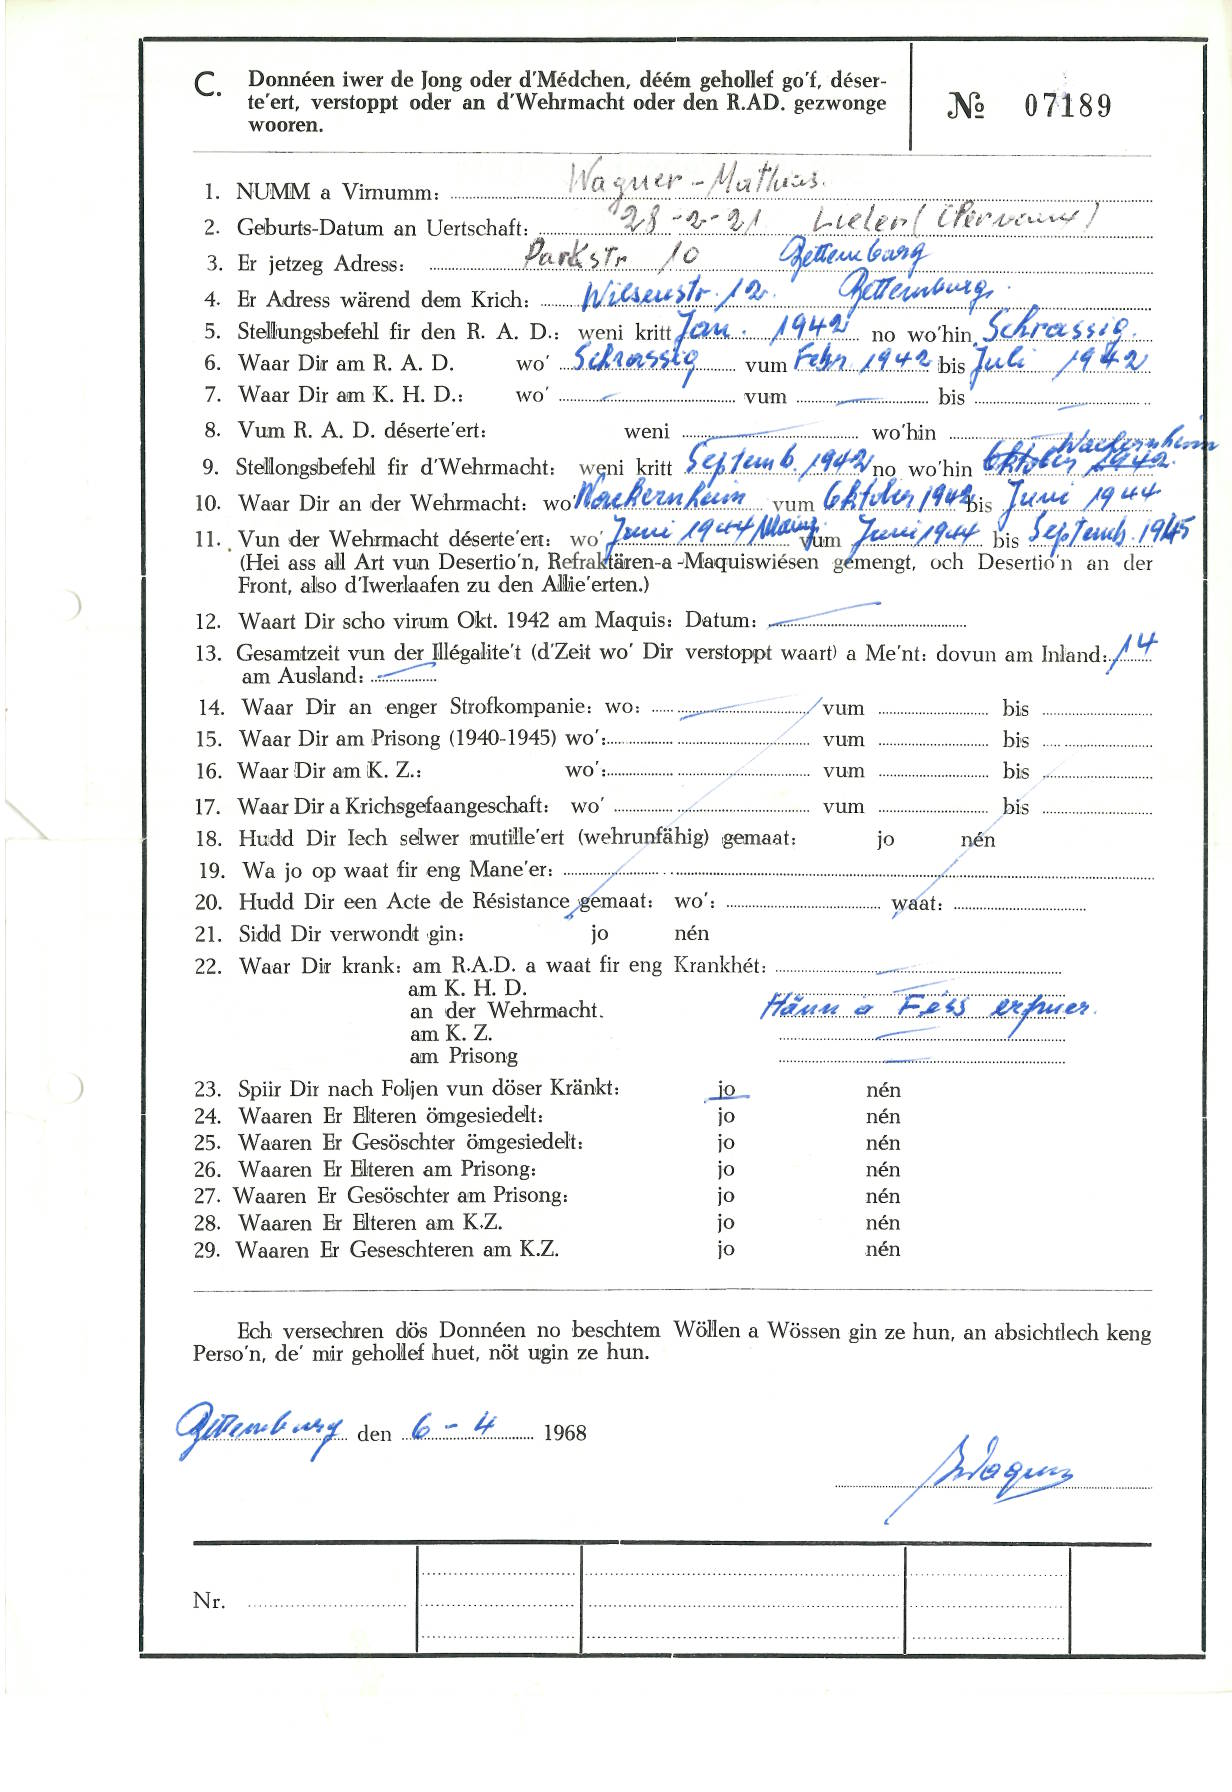 C. Donnéen iwer de Jong oder d'Médchen, déém gehollef go'f, déser-
te'ert, verstoppt oder an d'Wehrmacht oder den R.AD. gezwonge
wooren.
№ 07189
1. NUMM a Virnumm: Wagner - Mathias.
2. Geburts-Datum an Uertschaft: 28-2-21 Lieler (Clervaux)
3. Er jetzeg Adress: Parkstr 10 Bettemburg
4. Er Adress wärend dem Krich: Wilsenstr. 12. Bettemburg.
5. Stellungsbefehl fir den R. A. D.: weni kritt Jan. 1942 no wo'hin Schrassig.
6. Waar Dir am R. A. D. wo' Schrassig vum Febr 1942 bis Juli 1942
7. Waar Dir am K. H. D.: wo' — vum — bis —
8. Vum R. A. D. déserte'ert: weni — wo'hin —
9. Stellongsbefehl fir d'Wehrmacht: weni kritt Septemb. 1942 no wo'hin Oktober 1942. Wackernheim
10. Waar Dir an der Wehrmacht: wo' Wackernheim vum Oktober 1942 bis Juni 1944
11. Vun der Wehrmacht déserte'ert: wo' Juni 1944/Mainz vum Juni 1944 bis Septemb. 1945
(Hei ass all Art vun Desertio'n, Refraktären-a-Maquiswiésen gemengt, och Desertio'n an der
Front, also d'Iwerlaafen zu den Allie'erten.)
12. Waart Dir scho virum Okt. 1942 am Maquis: Datum: —
13. Gesamtzeit vun der Illégalite't (d'Zeit wo' Dir verstoppt waart) a Me'nt: dovun am Inland: 14
am Ausland: —
14. Waar Dir an enger Strofkompanie: wo: — vum bis
15. Waar Dir am Prisong (1940-1945) wo': vum bis
16. Waar Dir am K. Z.: wo': vum bis
17. Waar Dir a Krichsgefaangeschaft: wo' vum bis
18. Hudd Dir Iech selwer mutille'ert (wehrunfähig) gemaat: jo nén
19. Wa jo op waat fir eng Mane'er:
20. Hudd Dir een Acte de Résistance gemaat: wo': waat:
21. Sidd Dir verwondt gin: jo nén
22. Waar Dir krank: am R.A.D. a waat fir eng Krankhét: —
am K. H. D. —
an der Wehrmacht. Hänn a Féss erfruer.
am K. Z. —
am Prisong —
23. Spiir Dir nach Foljen vun döser Kränkt: jo nén
24. Waaren Er Elteren ömgesiedelt: jo nén
25. Waaren Er Gesöschter ömgesiedelt: jo nén
26. Waaren Er Elteren am Prisong: jo nén
27. Waaren Er Gesöschter am Prisong: jo nén
28. Waaren Er Elteren am K.Z. jo nén
29. Waaren Er Geseschteren am K.Z. jo nén
Ech versechren dös Donnéen no beschtem Wöllen a Wössen gin ze hun, an absichtlech keng
Perso'n, de' mir gehollef huet, nöt ugin ze hun.
Bettemburg den 6-4 1968
Wagner
Nr.